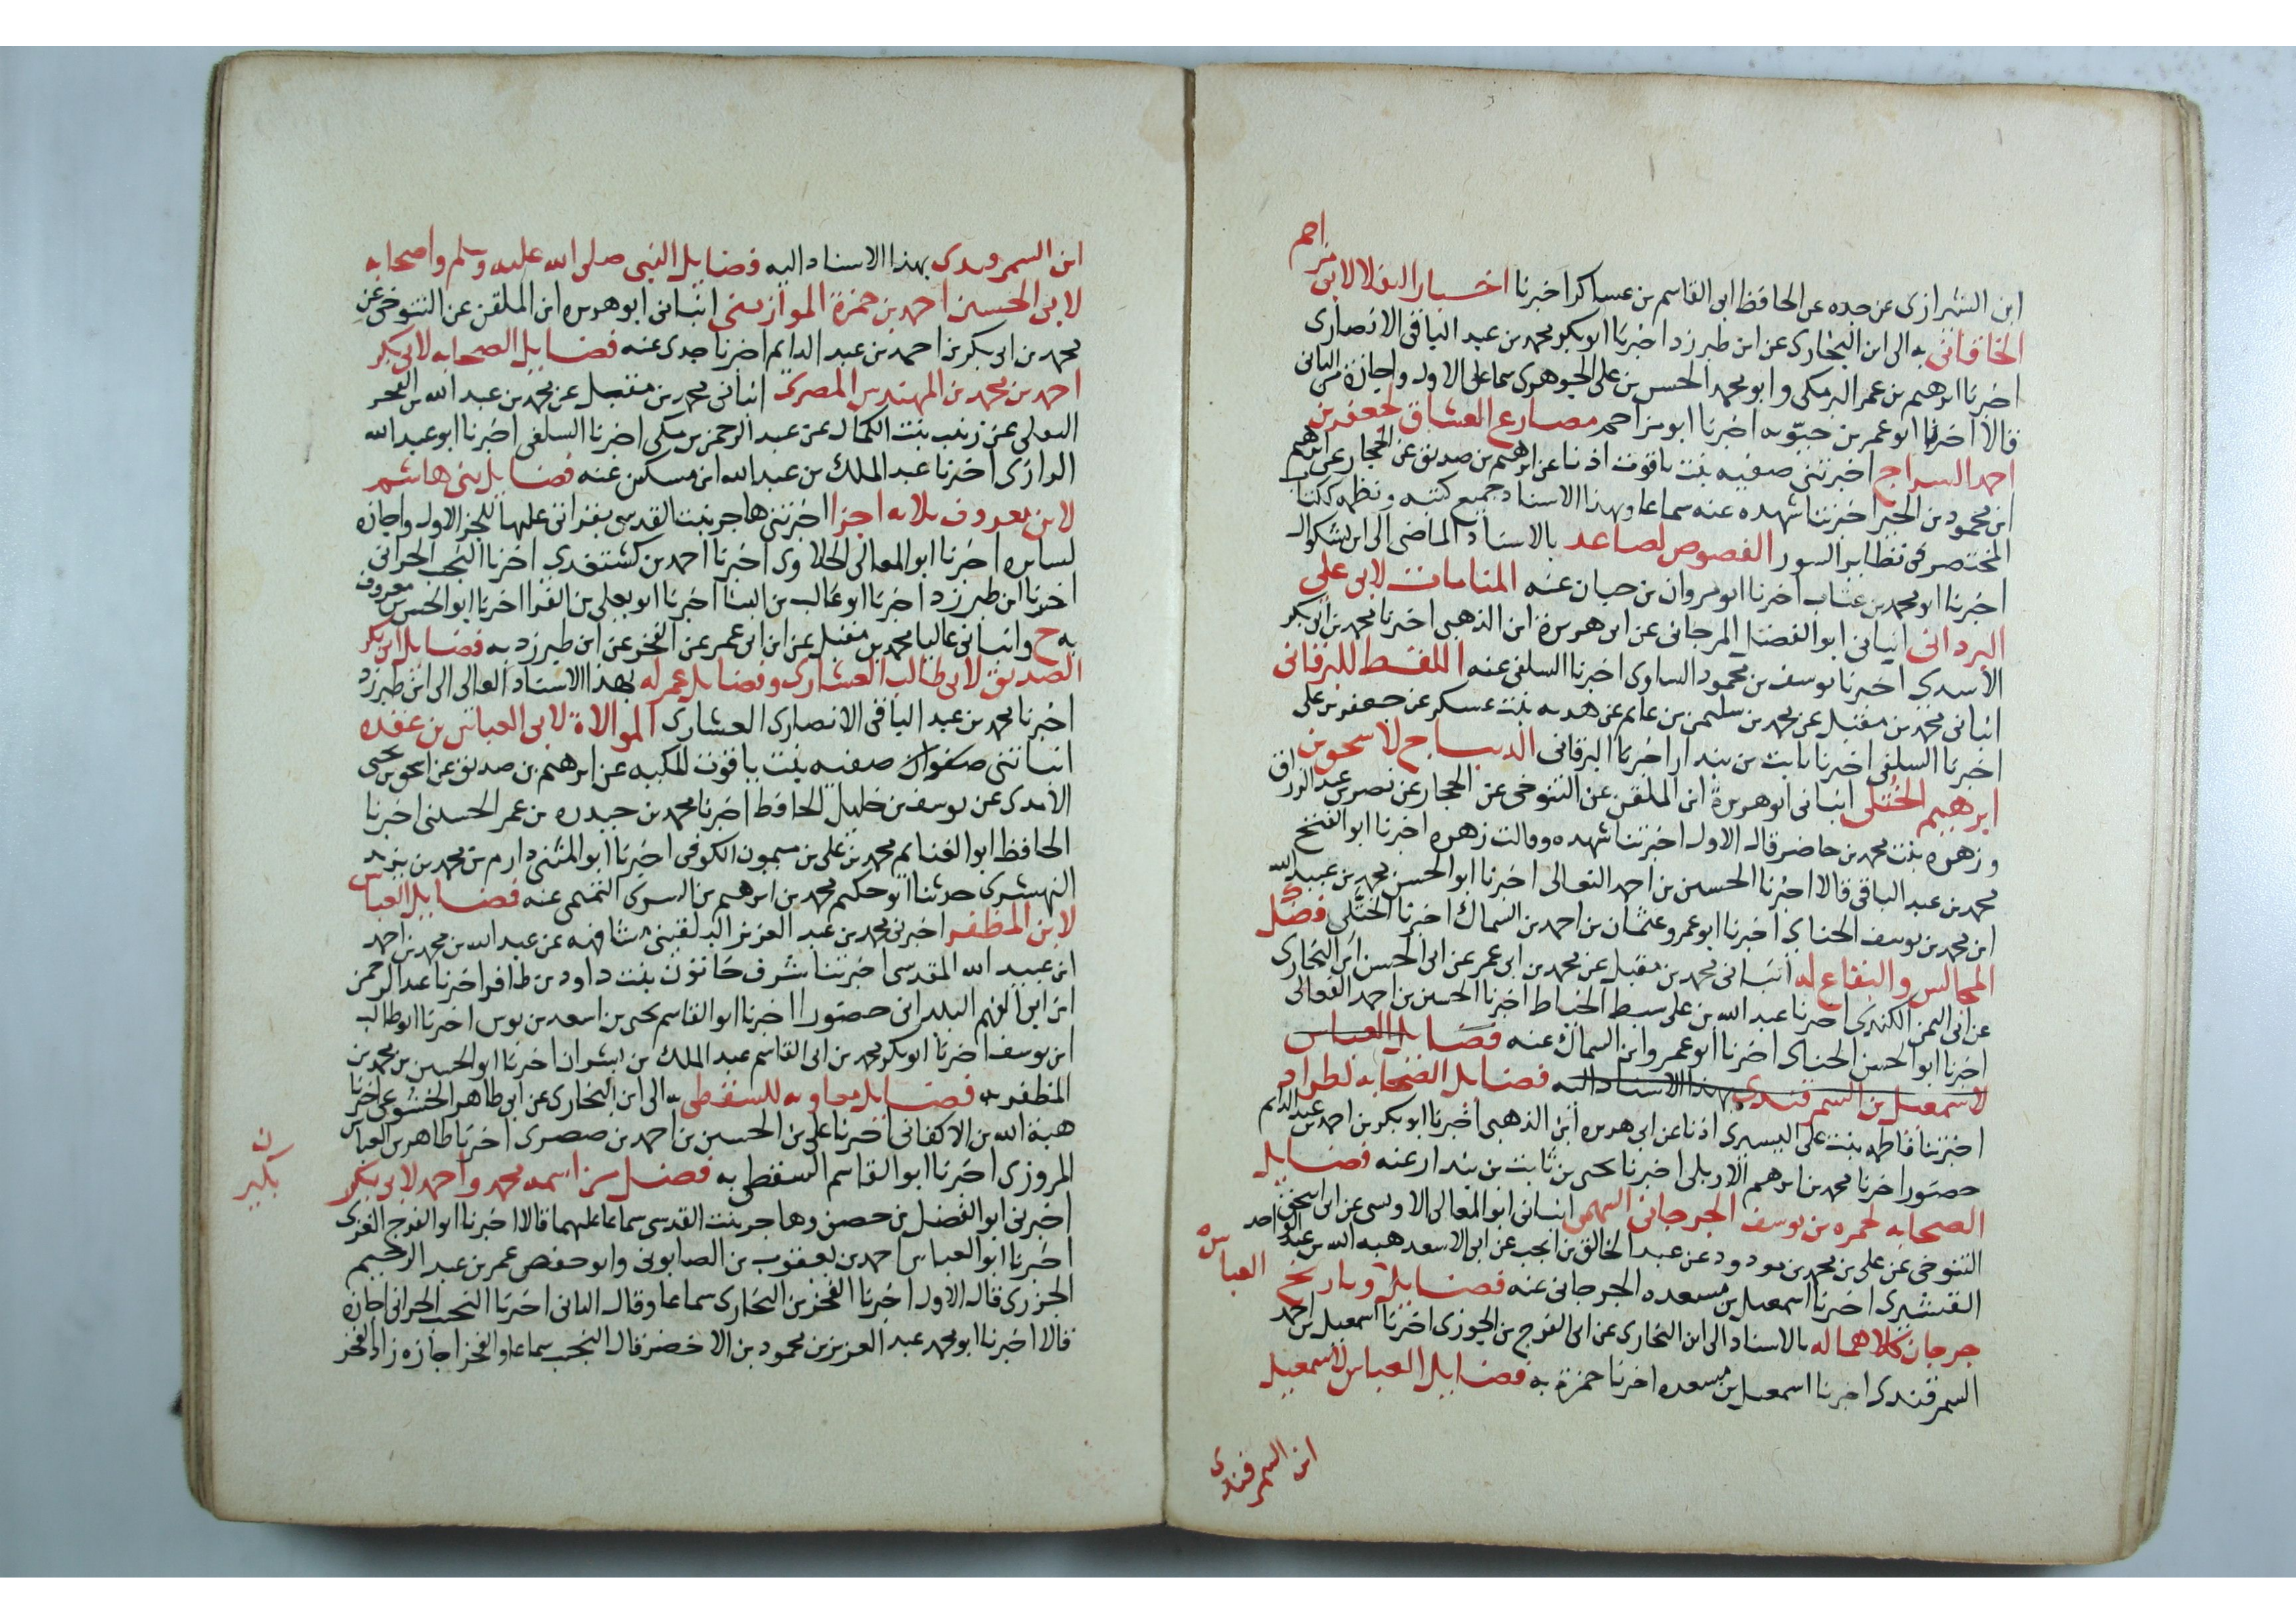 ابن الشيرازى عن جده عن الحافظ ابى القاسم بن عساكر اخبرنا اخبار لابى
مزاحم
الخاقانى به الى ابن البخارى عن ابن طبرزد اخبرنا ابو بكر محمد بن عبد الباقى الانصارى
اخبرنا ابرهيم بن عمر البرمكى وابو محمد الحسن بن على الجوهرى سماعا على الاول واجازة من الثانى
قالا اخبرنا ابو عمر بن حيويه اخبرنا ابو مزاحم مصارع العشاق لجعفر بن
احمد السراج اخبرتنى صفيه بنت ياقوت اذنا عن ابرهيم بن صديق عن الحجار عن ابرهيم
ابن محمود بن الخير اخبرتنا شهده عنه سماعا وبهذا الاسناد جميع كتبه ونظمه ككتاب
المختصر فى نظاير السور الفصوص لصاعد بالاسناد الماضى الى ابن بشكوال
اخبرنا ابو محمد بن عتاب اخبرنا ابو مروان بن حيان عنه المنامات لابى على
البردانى انبانى ابو الفضل المرجانى عن ابى هريرة ابن الذهبى اخبرنا محمد بن ابى بكر
الاسدى اخبرنا يوسف بن محمود الساوى اخبرنا السلفى عنه الملتقط للبرقانى
انبانى محمد بن مقبل عن محمد بن سليمن بن غانم عن هديه بنت عسكر عن جعفر بن على
اخبرنا السلفى اخبرنا ثابت بن بندار اخبرنا البرقانى الديباج لاسحق بن
ابرهيم الختلى انبانى ابو هريرة ابن الملقن عن التنوخى عن الحجار عن نصر بن عبد الرزاق
وزهره بنت محمد بن حاضر قال الاول اخبرتنا شهده وقالت زهره اخبرنا ابو الفتح
محمد بن عبد الباقى قالا اخبرنا الحسين بن احمد النعالى اخبرنا ابو الحسن محمد بن عبيد الله
ابن محمد بن يوسف الحنائى اخبرنا ابو عمرو عثمان بن احمد بن السماك اخبرنا الختلى فضل
المجالس والبقاع له انبانى محمد بن مقبل عن محمد بن ابى عمر عن ابى الحسن ابن البخارى
عن ابى اليمن الكندى اخبرنا عبد الله بن على سبط الخياط اخبرنا الحسين بن احمد النعالى
اخبرنا ابو الحسن الحنائى اخبرنا ابو عمرو ابن السماك عنه فضايل العباس
لاسمعيل بن السمرقندى بهذا الاسناد اليه فضايل الصحابه لطراد
اخبرتنا فاطمه بنت على اليسيرى اذنا عن ابى هريره ابن الذهبى اخبرنا ابو بكر بن احمد بن عبد الدايم
حضورا اخبرنا محمد بن ابرهيم الاربلى اخبرنا يحيى بن ثابت بن بندار عنه فضايل
الصحابه لحمزه بن يوسف الجرجانى السهمى انبانى ابو المعالى الاولسى عن ابى اسحق
التنوخى عن على بن محمد بن مودود عن عبد الخالق بن انجب عن ابى الاسعد هبه الله بن عبد الواحد
القشيرى اخبرنا اسمعيل بن مسعده الجرجانى عنه فضايل العباس وتاريخ
جرجان كلاهما له بالاسناد الى ابن البخارى عن ابى الفرج بن الجوزى اخبرنا اسمعيل بن احمد
السمرقندى اخبرنا اسمعيل بن مسعده اخبرنا حمزة به فضايل العباس لاسمعيل
ابن السمرقندى
ابن السمرقندى بهذا الاسناد اليه فضايل النبى صلى الله عليه وسلم واصحابه
لابى الحسين احمد بن حمزة الموازينى انبانى ابو هريره ابن الملقن عن التنوخى عن
محمد بن ابى بكر بن احمد بن عبد الدايم اخبرنا جدى عنه فضايل الصحابه لابى بكر
احمد بن محمد بن المهندس المصرى انبانى محمد بن مقبل عن محمد بن عبد الله بن
البعلى عن زينب بنت الكمال عن عبد الرحمن بن مكى اخبرنا السلفى اخبرنا ابو عبد الله
الرازى اخبرنا عبد الملك بن عبد الله ابن مسكين عنه فضايل بنى هاشم
لابن معروف ثلاثه اجزا اخبرتنى هاجر بنت القدسى بقراتى عليها للجز الاول واجازه
لسايره اخبرنا ابو المعالى الحلاوى اخبرنا احمد بن كشتغدى اخبرنا النجيب الحرانى
اخبرنا ابن طبرزد اخبرنا ابو غالب بن البنا اخبرنا ابو يعلى بن الفرا اخبرنا ابو الحسن بن معروف
به ح وانبانى عاليا محمد بن مقبل عن ابن ابى عمر عن الفخر عن ابن طبرزد به فضايل ابى بكر
الصديق لابى طالب العشارى وفضايل عمر له بهذا الاسناد العالى الى ابن طبرزد
اخبرنا محمد بن عبد الباقى الانصارى العشارى الموالاة لابى العباس بن عقده
انباتنى صفوان صفيه بنت ياقوت المكيه عن ابرهيم بن صديق عن اسحق بن يحيى
الامدى عن يوسف بن خليل الحافظ اخبرنا محمد بن حيدره بن عمر الحسينى اخبرنا
الحافظ ابو الغنايم محمد بن على بن ميمون الكوفى اخبرنا ابو المثنى دارم بن محمد بن يزيد
النهشرى حدثنا ابو حكيم محمد بن ابرهيم بن السرى التميمى عنه فضايل العباس
لابن المظفر اخبرنى محمد بن عبد العزيز البلقينى مشافهه عن عبد الله بن محمد بن احمد
ابن عبيد الله المقدسى اخبرتنا شرف خاتون بنت داود بن ظافر اخبرنا عبد الرحمن
ابن ابى الفهم البلدانى حضورا اخبرنا ابو القاسم يحيى بن اسعد بن بوش اخبرنا ابو طالب
ابن يوسف اخبرنا ابو بكر محمد بن ابى القاسم عبد الملك بن بشران اخبرنا ابو الحسين بن محمد بن
المظفر به فضايل معاويه للسقطى به الى ابن البخارى عن ابى طاهر الخشوعى اخبرنا
هبة الله بن الاكفانى اخبرنا على بن الحسين بن احمد بن صصرى اخبرنا طاهر بن العباس
المروزى اخبرنا ابو القاسم السقطى به فضل من اسمه محمد واحمد لابى بكر
بن بكير
اخبرنى ابو الفضل بن حصن وهاجر بنت القدسى سماعا عليهما قالا اخبرنا ابو الفرج الغزى
اخبرنا ابو العباس احمد بن يعقوب بن الصابونى وابو حفص عمر بن عبد الرحيم
الجزرى قال الاول اخبرنا الفخر بن البخارى سماعا وقال الثانى اخبرنا النجيب الحرانى اجازه
قالا اخبرنا ابو محمد عبد العزيز بن محمود بن الاخضر قال النجيب سماعا والفخر اجازه زاد الفخر